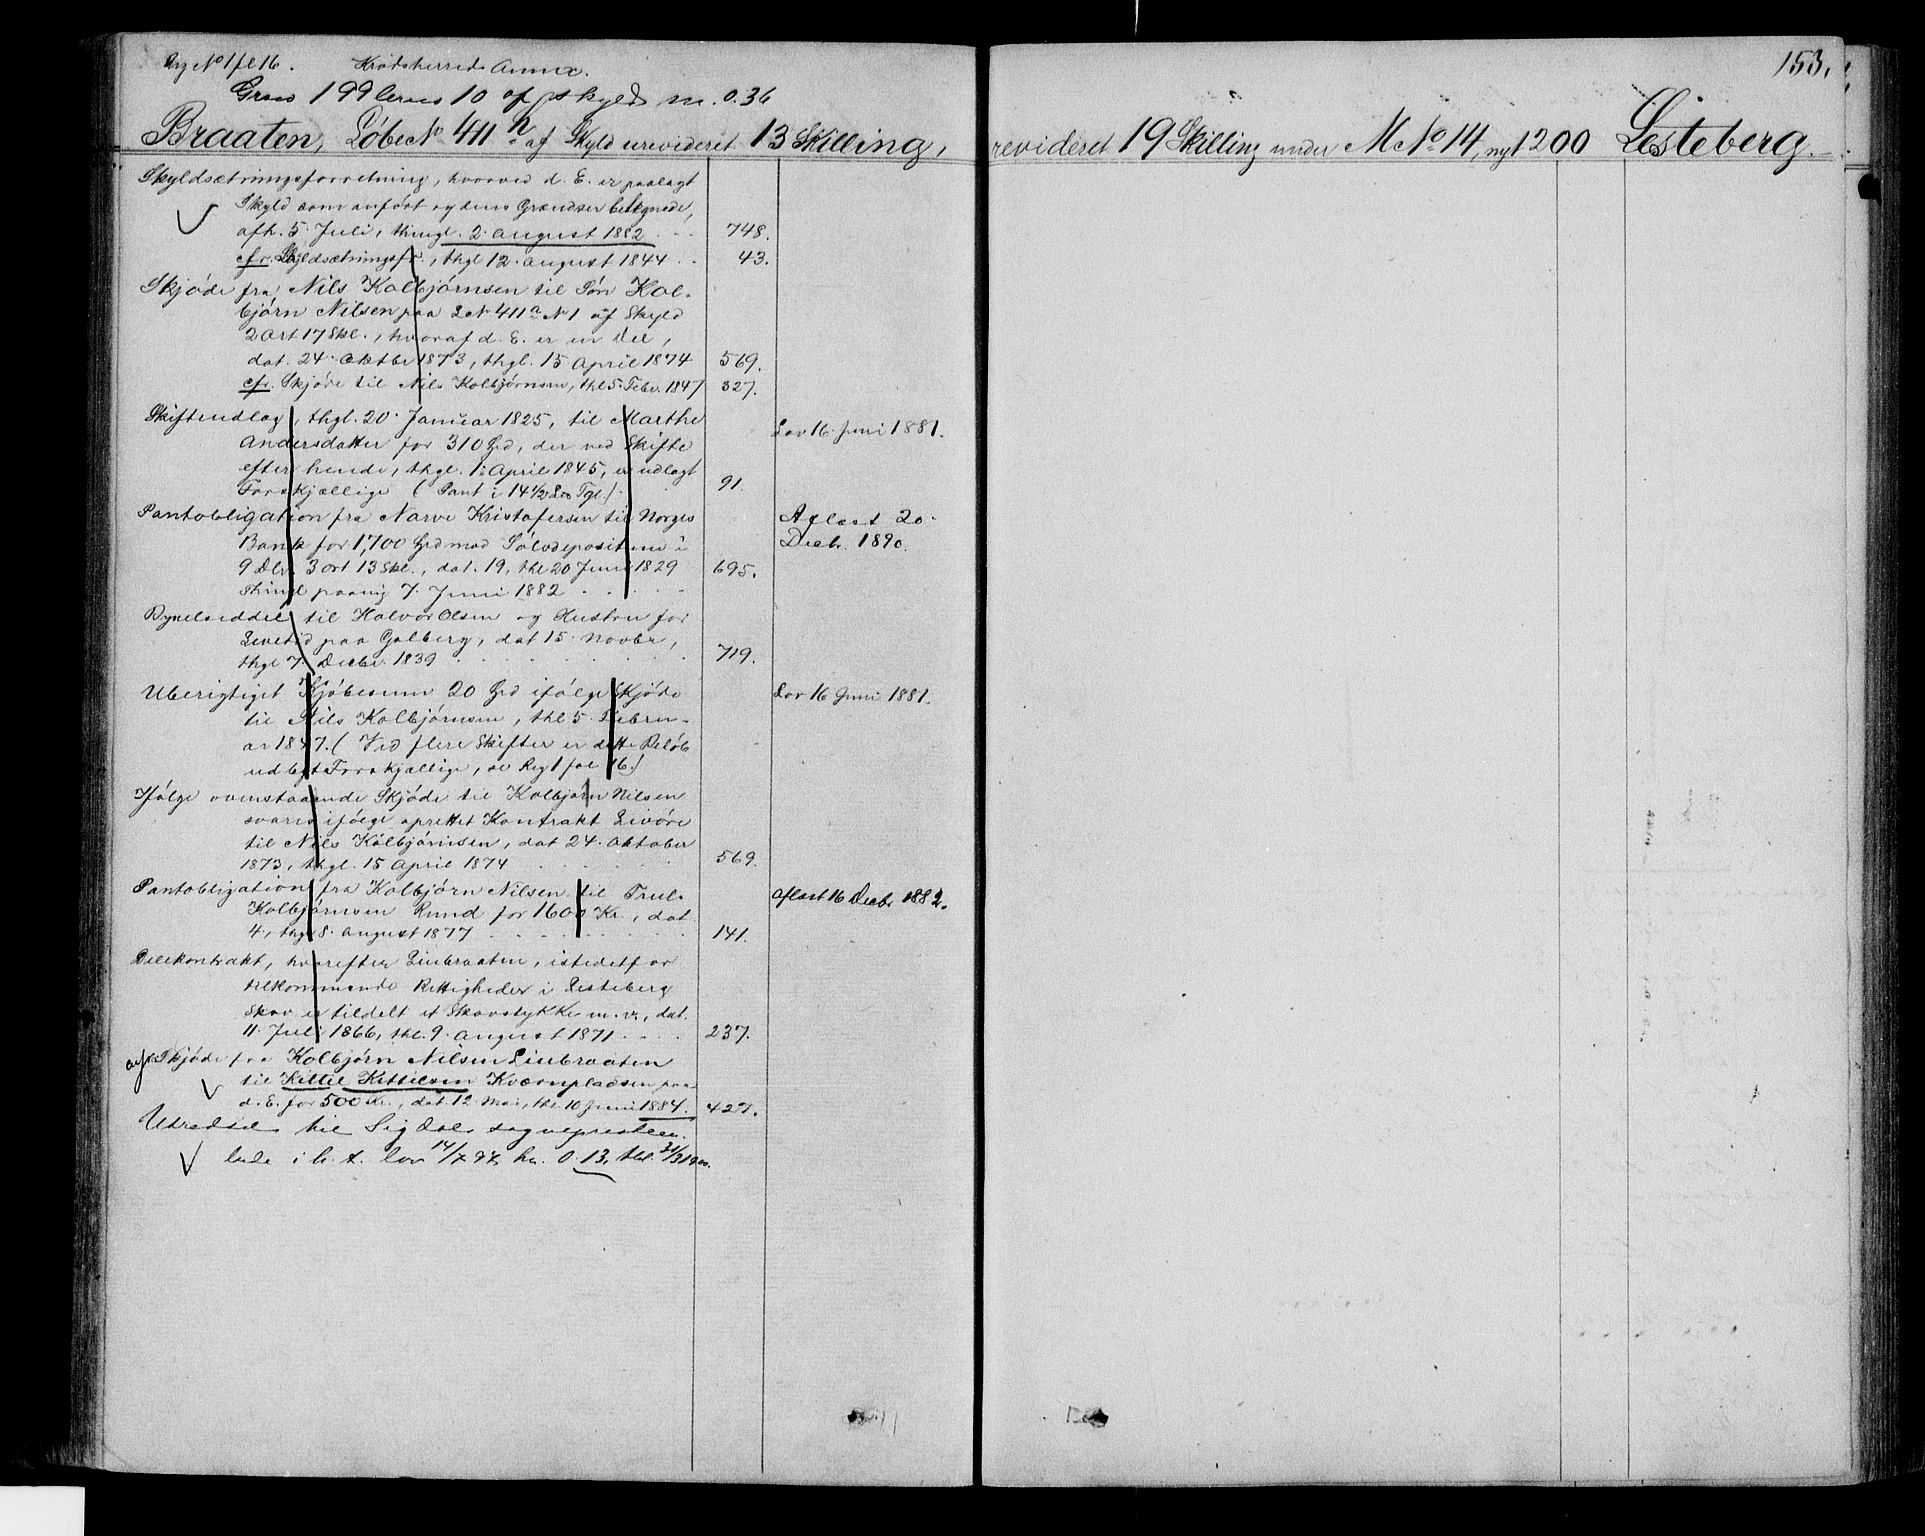 Reg No 1 fol 16. Krødsherreds Annex.
153.
Grno 199 brno 10 af skyld m. 0.36
Braaten, LøbeNo 411 h af Skyld urevideret 13 Skilling, revideret 19 Skilling under M No 14, nyt 200 Lesteberg.
Skyldsætningsforretning, hvorved d. E. er paalagt
Skyld som anført og dens Grændser betegnede,
afh. 5. Juli, thingl. 2. august 1882 . . 748.
cfr. Skyldsætningsfr., thgl 12. august 1844 . . 43.
Skjøde fra Nils Kolbjørnsen til Søn Kol-
bjørn Nilsen paa LN 411 a N 1 af Skyld
2 Ort 17 Skl., hvoraf d. E. er en Del,
dat. 24. Oktbr 1873, thgl. 15 April 1874 569.
cfr. Skjøde til Nils Kolbjørnsen, thl 5. Febr. 1847 327.
Skifteudlæg, thgl. 20. Januar 1825, til Marthe
Andersdatter for 310 Spd, der ved Skifte
efter hende, thgl. 1. April 1845, er udlagt
Forskjællige (Pant i 14 1/2 Los Tgl.) . 91
Lov 16. Juni 1881.
Pantobligation fra Narve Kristofersen til Norges
Bank for 1,700 Spd mod Sølvdepositum i
9 Dlr 3 ort 13 Skl., dat. 19, thl 20 Juni 1829 695.
Thingl paany 7. Juni 1882 . . . .
Aflæst 20.
Decbr. 1890.
Bygselseddel til Halvor Olsen og Hustru for
Livetid paa Golberg, dat 15. Novbr,
thgl 7. Decbr. 1839 . . . . . . 719.
Uberigtiget Kjøbesum 20 Spd ifølge Skjøde
til Nils Kolbjørnsen, thl 5. Februa-
ar 1847. (Ved flere Skifter er dette Beløb
udlagt Forskjællige, se Reg 1 fol 16.)
Lov 16 Juni 1881.
Ifølge ovenstaaende Skjøde til Kolbjørn Nilsen
svares ifølge oprettet Kontrakt Livøre
til Nils Kolbjørnsen, dat 24. Oktober
1873, thgl. 15 April 1874 . . . . . 569.
Pantobligation fra Kolbjørn Nilsen til Truls
Kolbjørnsen Rund for 1600 Kr., dat
4., thgl 8. August 1877 . . . . . 141.
Aflæst 16 Decbr 1882.
Delekontrakt, hvorefter Liebraaten, istedetfor
tilkommende Rettigheder i Lesteberg
Skov er tildelt et Skovstykke m. v., dat.
11. Juli 1866, thl. 9. august 1871 . . . . 237.
Skjøde fra Kolbjørn Nilsen Liebraaten
til Kittil Kittilsen Kværnpladsen paa
d. E. for 500 Kr., dat. 12 Mai, thl 10 Juni 1884. 427.
Utredsel til Sigdals sogneprestem-
bede i h. t. lov 14/7 97, kr. 0.13, thl. 31/3 1900.